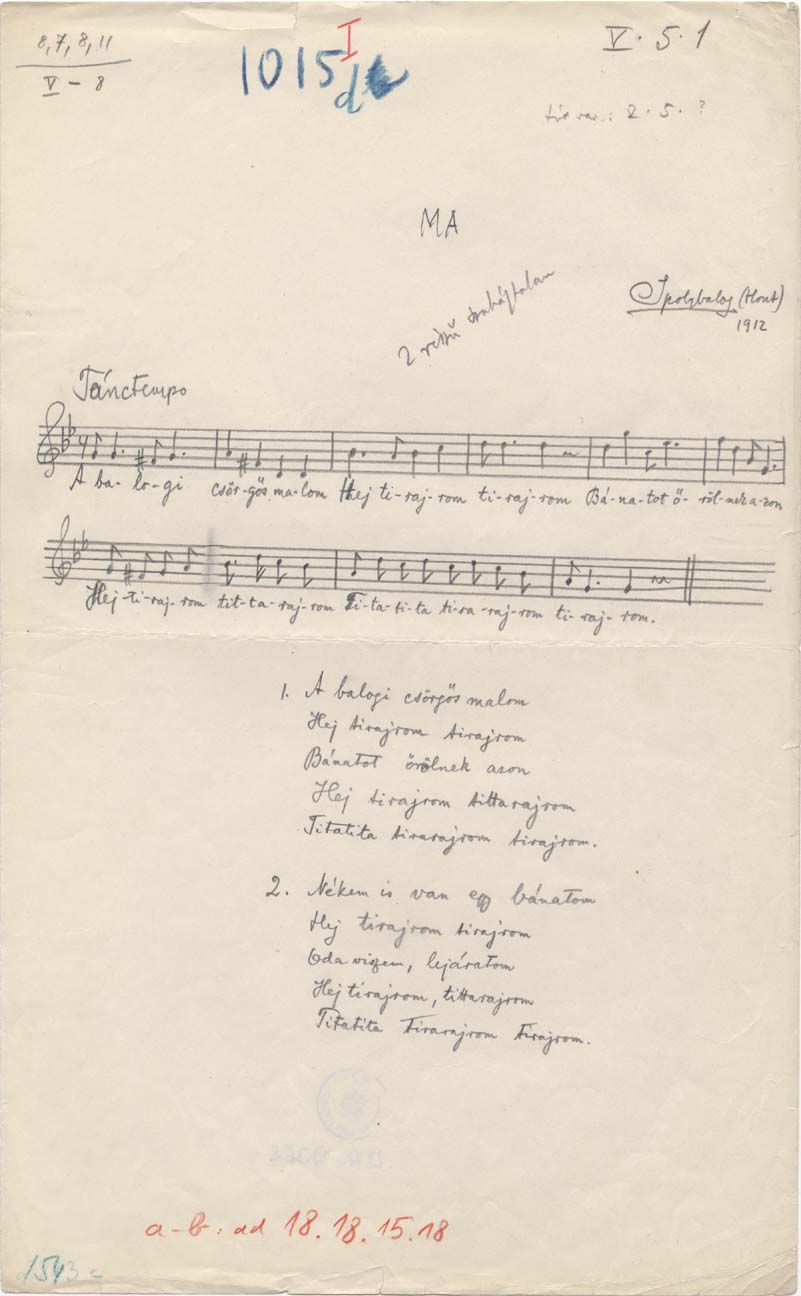 8, 7, 8, 11
V – 8
1015 I
d
V. 5. 1
var.: 5. ?
MA
Ipolybalog (Hont)
1912
2
Tánctempo
A ba-lo-gi csör-gős ma-lom Hej ti-raj-rom ti-raj-rom Bá-na-tot ö-röl-nek a-zon
Hej-ti-raj-rom tit-ta-raj-rom Ti-ta-ti-ta ti-ra-raj-rom ti-raj-rom.
1. A balogi csörgős malom
Hej tirajrom tirajrom
Bánatot örölnek azon
Hej tirajrom tittarajrom
Titatita tirarajrom tirajrom.
2. Nékem is van egy bánatom
Hej tirajrom tirajrom
Oda viszem, lejáratom
Hej tirajrom, tittarajrom
Titatita tirarajrom tirajrom.
a-b: ad 18. 18. 15. 18
1543 c